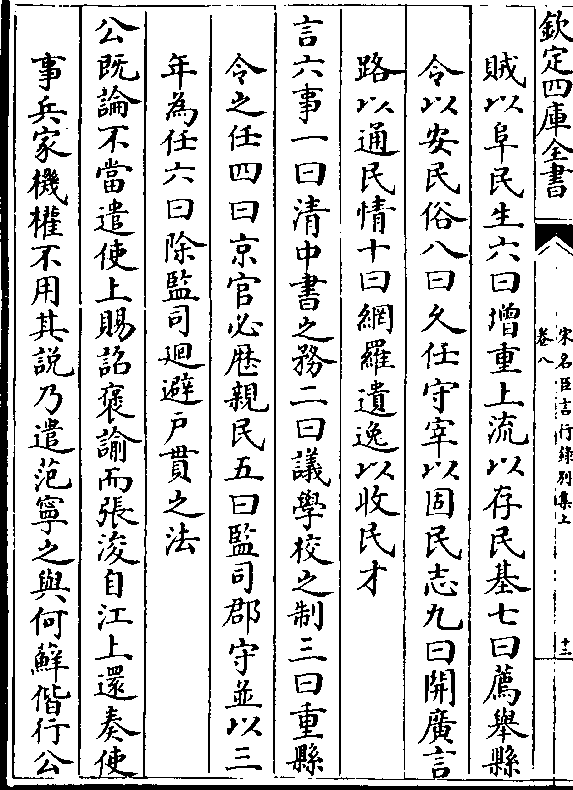 欽定四庫全書
宋名臣言行錄別集上
卷八
十三
賊以阜民生六曰增重上流以存民基七曰薦舉縣
令以安民俗八曰久任守宰以固民志九曰開廣言
路以通民情十曰網羅遺逸以收民才
言六事一曰清中書之務二曰議學校之制三曰重縣
令之任四曰京官必歷親民五曰監司郡守並以三
年為任六曰除監司廻避戸貫之法
公既論不當遣使上賜詔褒諭而張浚自江上還奏使
事兵家機權不用其說乃遣范寧之與何蘚偕行公